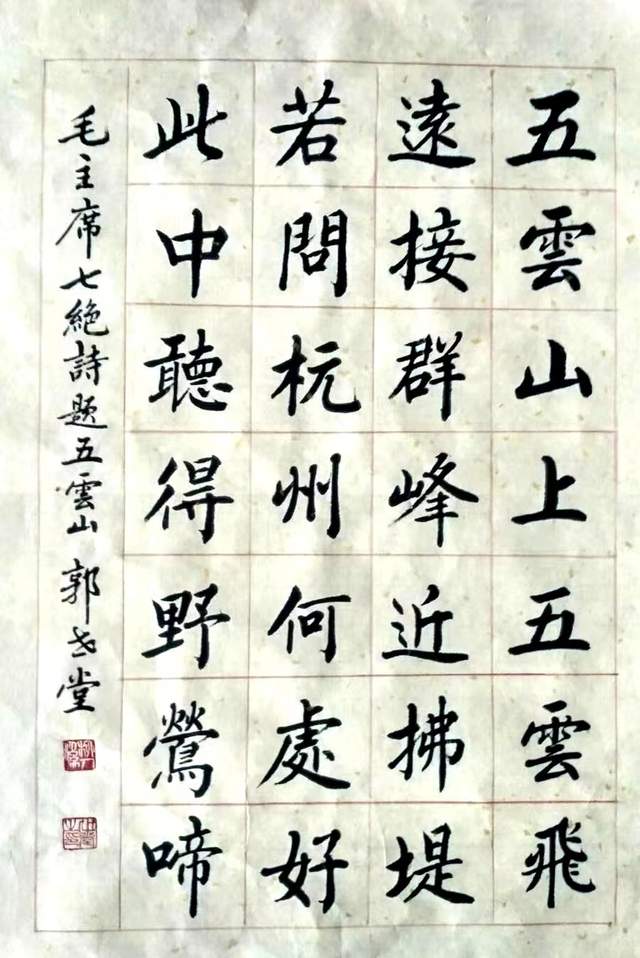 五雲山上五雲飛
遠接群峰近拂堤
若問杭州何處好
此中聽得野鶯啼
毛主席七絶詩題五雲山 郭世堂